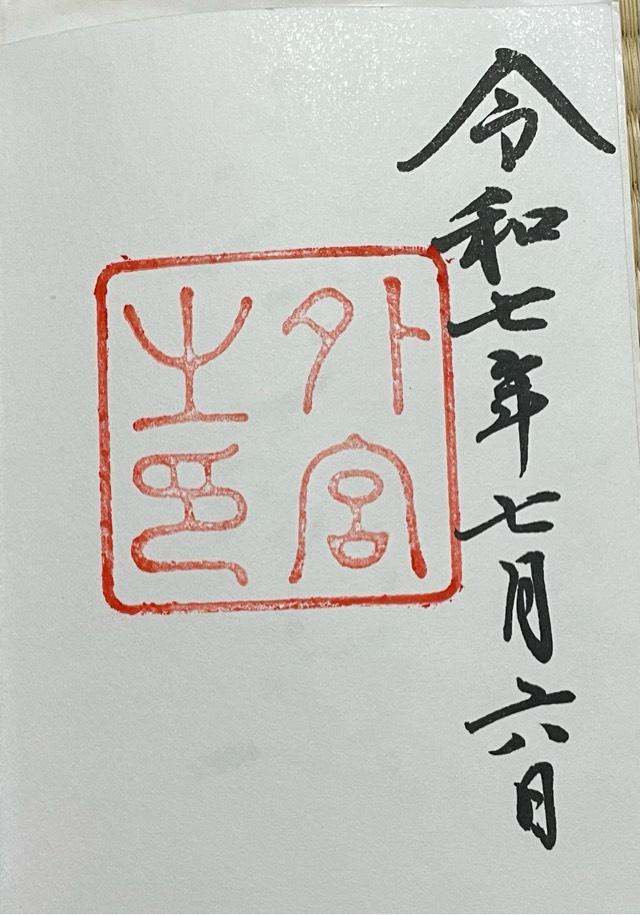 令和七年七月六日
外宮
之印